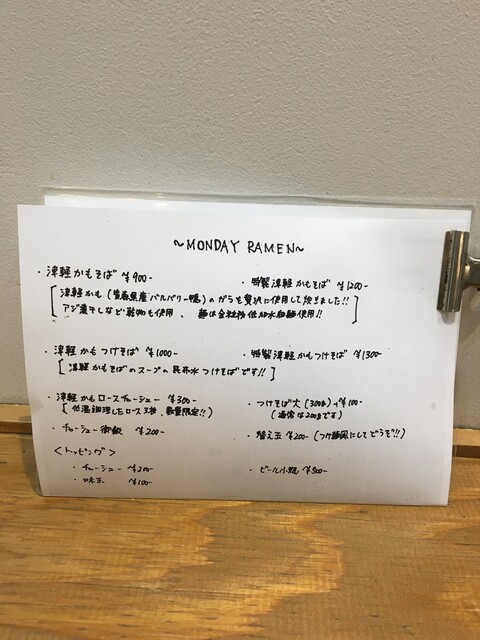 ~MONDAY RAMEN~
・津軽かもそば ¥900-
・特製津軽かもそば ¥1200-
[津軽かも(青森県産バルバリー鴨)のガラを贅沢に使用して炊きました!!
アジ煮干しなど乾物も使用、麺は会社粉低加水細麺使用!!]
・津軽かもつけそば ¥1000-
・特製津軽かもつけそば ¥1300-
[津軽かもそばのスープの昆布水つけそばです!!]
・津軽かもロースチャーシュー ¥300-
[低温調理したロース様、数量限定!!]
・つけそば大(300g)+¥100-
(通常は200gです)
・チャーシュー御飯 ¥200-
・替え玉 ¥200-(つけ麺風にしてどうぞ!!)
<トッピング>
・チャーシュー ¥200-
・味玉 ¥100-
・ビール小瓶 ¥500-